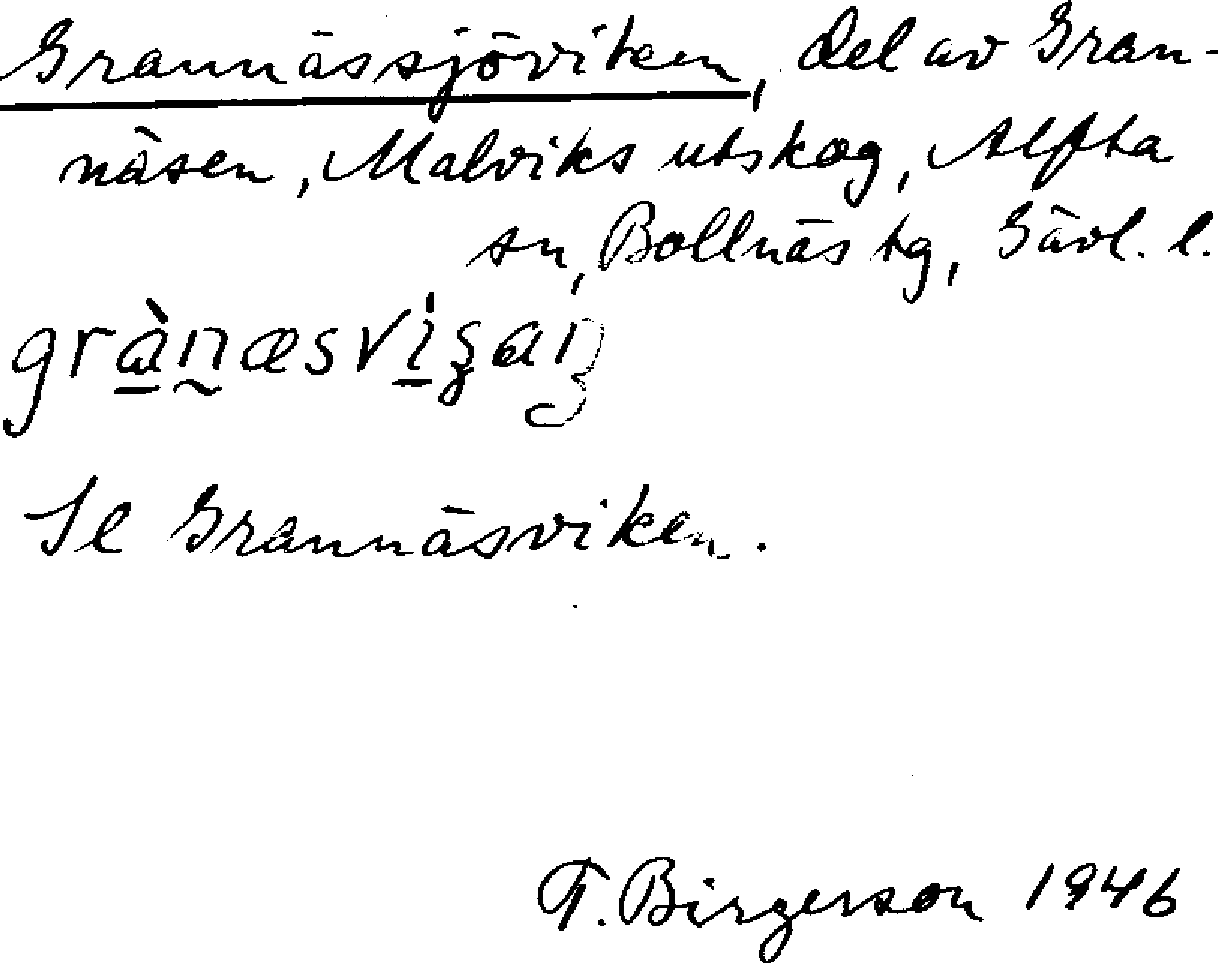 Grannässjöviken, del av Gran-
näsen, Malviks utskog, Alfta
sn, Bollnäs tg, Gävl. l.
Se Grannäsviken.
F. Birgerson 1946